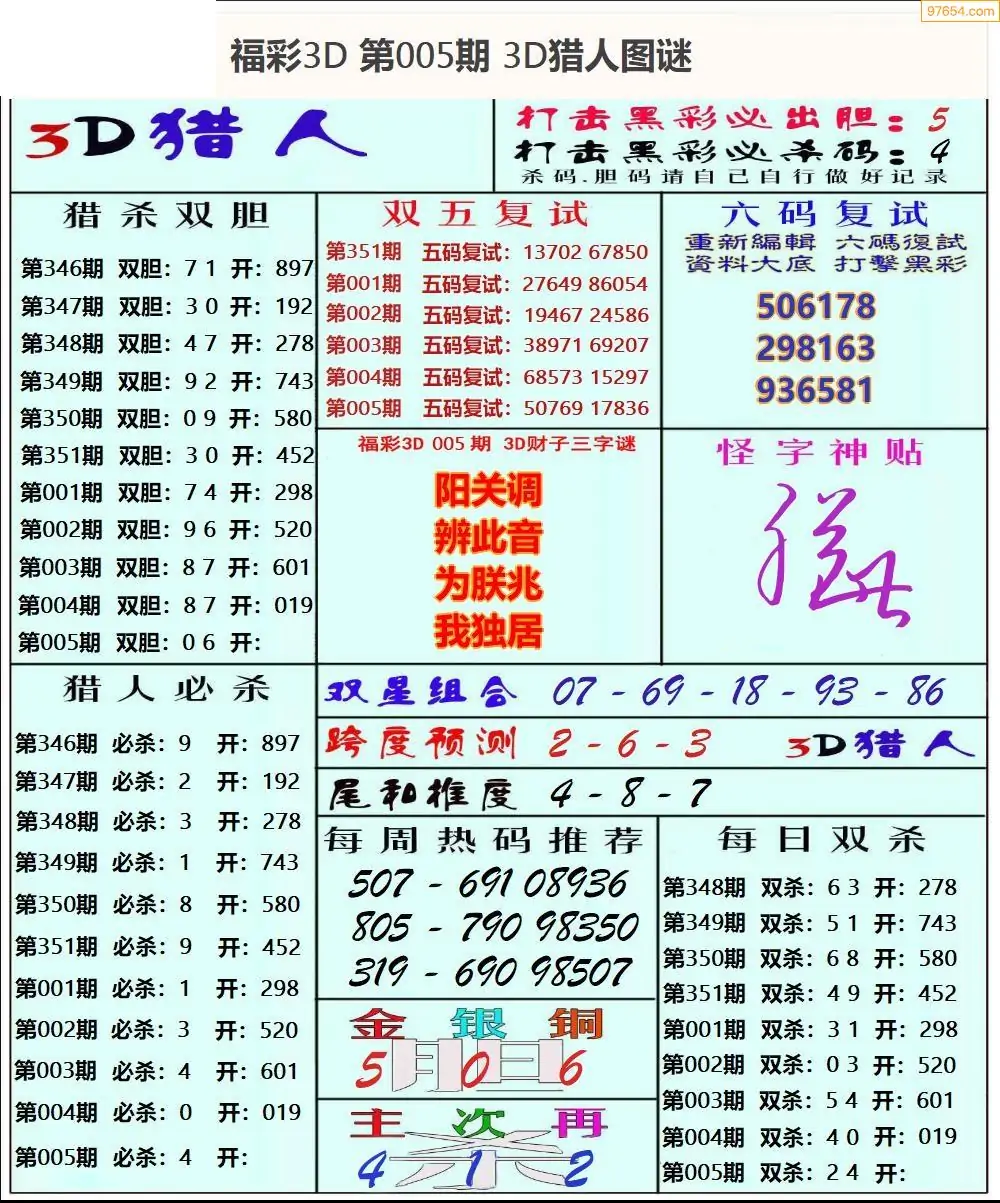 97654.com
福彩3D 第005期 3D猎人图谜
3D猎人
打击黑彩必出胆：5
打击黑彩必杀码：4
杀码.胆码请自己自行做好记录
猎杀双胆
第346期 双胆：7 1 开：897
第347期 双胆：3 0 开：192
第348期 双胆：4 7 开：278
第349期 双胆：9 2 开：743
第350期 双胆：0 9 开：580
第351期 双胆：3 0 开：452
第001期 双胆：7 4 开：298
第002期 双胆：9 6 开：520
第003期 双胆：8 7 开：601
第004期 双胆：8 7 开：019
第005期 双胆：0 6 开：
双五复试
第351期 五码复试：13702 67850
第001期 五码复试：27649 86054
第002期 五码复试：19467 24586
第003期 五码复试：38971 69207
第004期 五码复试：68573 15297
第005期 五码复试：50769 17836
六码复试
重新編輯 六碼復試
資料大底 打擊黑彩
506178
298163
936581
福彩3D 005期 3D财子三字谜
阳关调
辨此音
为朕兆
我独居
怪字神贴
猎人必杀
第346期 必杀：9 开：897
第347期 必杀：2 开：192
第348期 必杀：3 开：278
第349期 必杀：1 开：743
第350期 必杀：8 开：580
第351期 必杀：9 开：452
第001期 必杀：1 开：298
第002期 必杀：3 开：520
第003期 必杀：4 开：601
第004期 必杀：0 开：019
第005期 必杀：4 开：
双星组合 07 - 69 - 18 - 93 - 86
跨度预测 2 - 6 - 3 3D猎人
尾和推度 4 - 8 - 7
每周热码推荐
507 - 691 08936
805 - 790 98350
319 - 690 98507
金银铜
胆
5 0 6
主次再
杀
4 1 2
每日双杀
第348期 双杀：6 3 开：278
第349期 双杀：5 1 开：743
第350期 双杀：6 8 开：580
第351期 双杀：4 9 开：452
第001期 双杀：3 1 开：298
第002期 双杀：0 3 开：520
第003期 双杀：5 4 开：601
第004期 双杀：4 0 开：019
第005期 双杀：2 4 开：